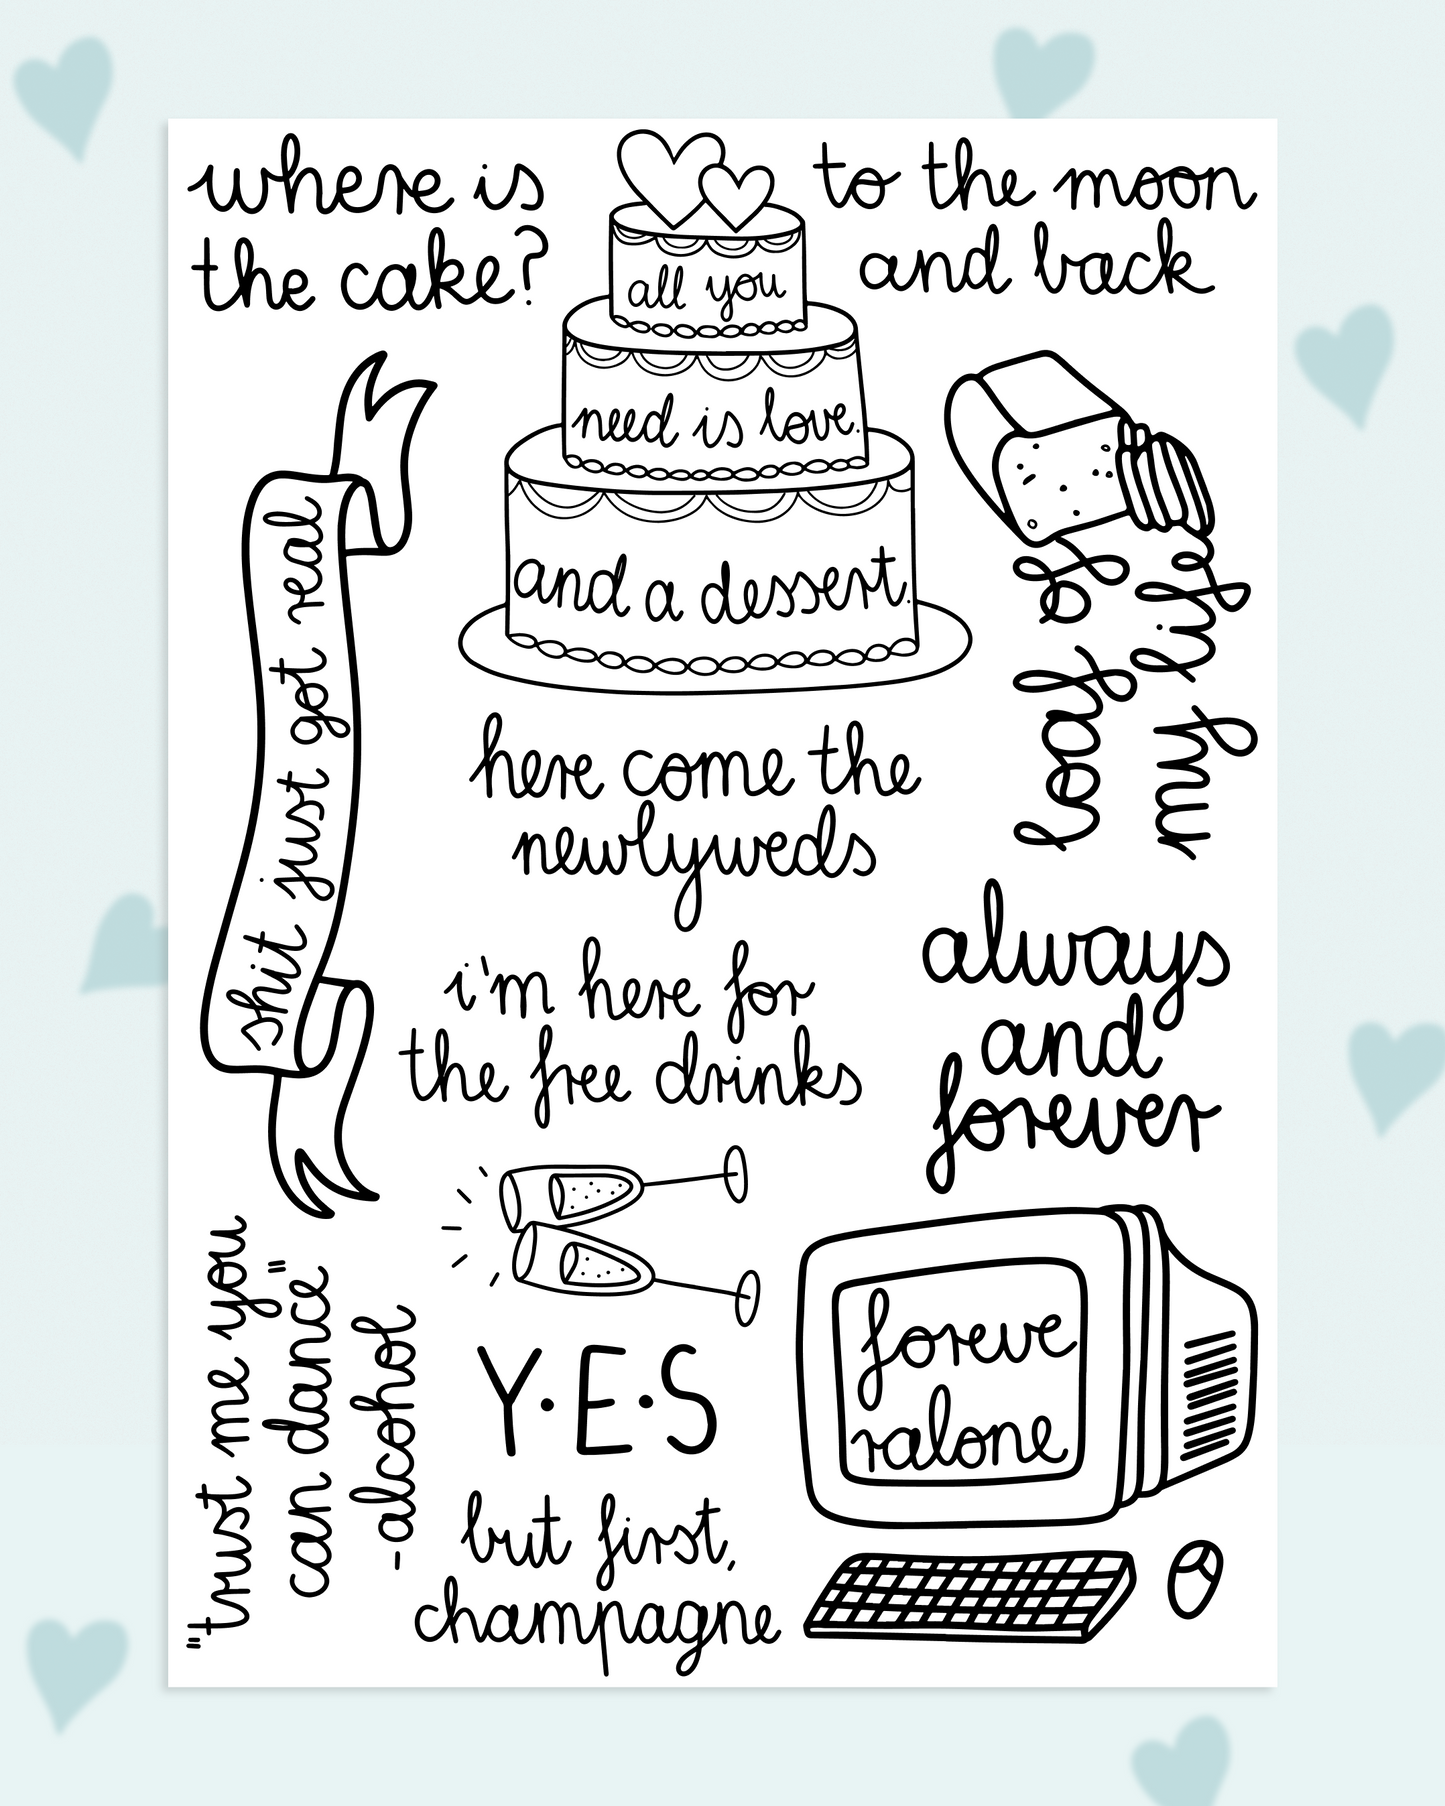 where is
the cake?
all you
need is love.
and a dessert.
to the moon
and back
shit just got real
loaf of
my life
here come the
newlyweds
i'm here for
the free drinks
always
and
forever
"trust me you
can dance"
-alcohol
Y·E·S
but first,
champagne
foreve
ralone